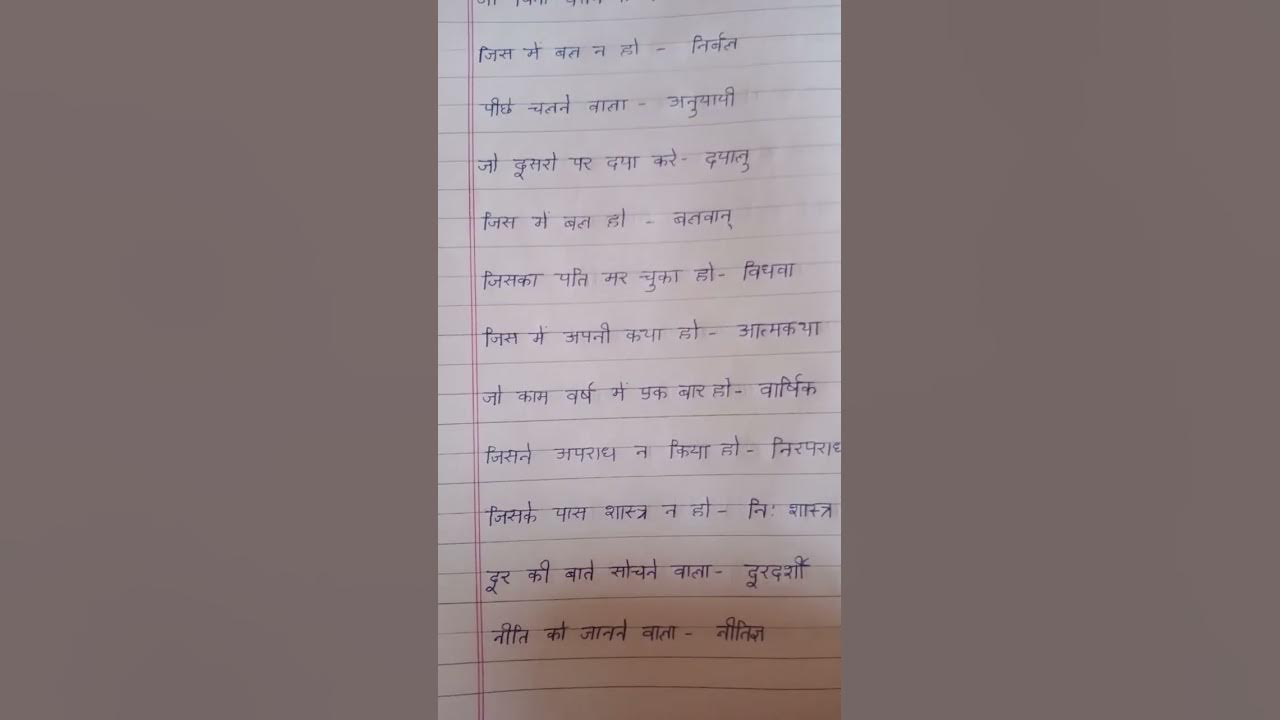 जिस में बल न हो - निर्बल
पीछे चलने वाला - अनुयायी
जो दूसरो पर दया करे- दयालु
जिस में बल हो - बलवान्
जिसका पति मर चुका हो- विधवा
जिस में अपनी कथा हो - आत्मकथा
जो काम वर्ष में एक बार हो- वार्षिक
जिसने अपराध न किया हो - निरपराध
जिसके पास शास्त्र न हो - नि: शास्त्र
दूर की बाते सोचने वाला- दूरदर्शी
नीति को जानने वाला - नीतिज्ञ